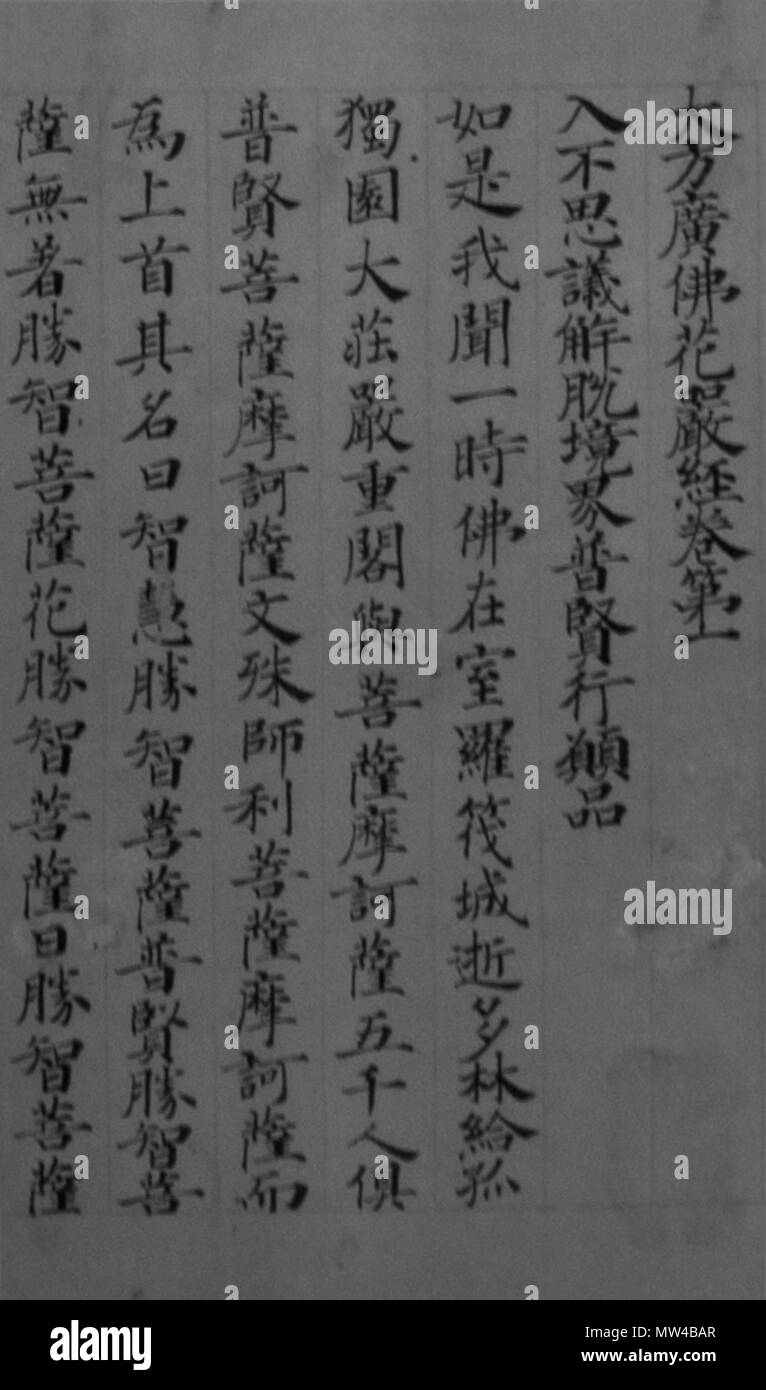 大方廣佛花嚴經卷第一
入不思議解脫境界普賢行願品
如是我聞一時佛在室羅筏城逝多林給孤
獨園大莊嚴重閣與菩薩摩訶薩五千人俱
普賢菩薩摩訶薩文殊師利菩薩摩訶薩而
為上首其名曰智慧勝智菩薩普賢勝智菩
薩無著勝智菩薩花勝智菩薩日勝智菩薩
alamy
a
alamy
Image ID: MW4BAR
www.alamy.com